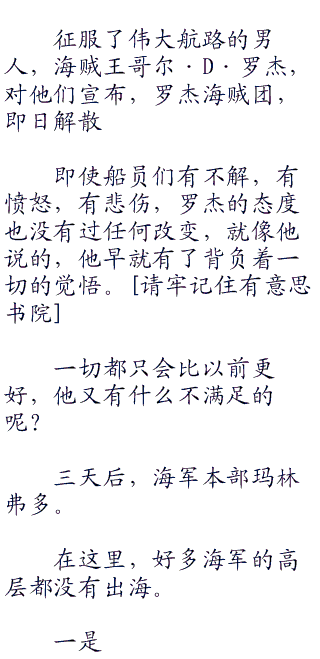 征服了伟大航路的男
人，海贼王哥尔·D·罗杰，
对他们宣布，罗杰海贼团，
即日解散
即使船员们有不解，有
愤怒，有悲伤，罗杰的态度
也没有过任何改变，就像他
说的，他早就有了背负着一
切的觉悟。[请牢记住有意思
书院]
一切都只会比以前更
好，他又有什么不满足的
呢？
三天后，海军本部玛林
弗多。
在这里，好多海军的高
层都没有出海。
一是